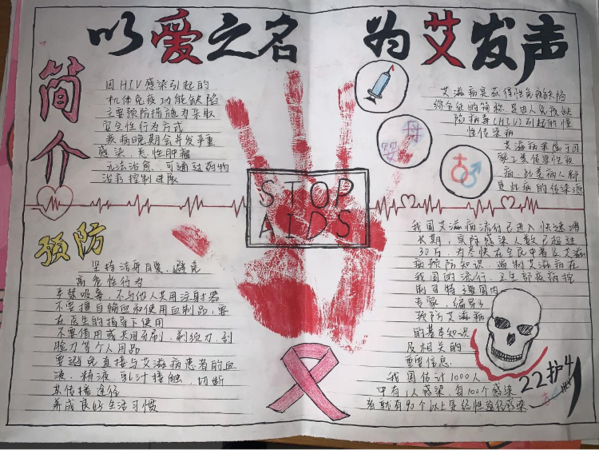 以爱之名 为艾发声
简介
因HIV感染引起的
机体免疫功能缺陷
主要预防措施为采取
安全性行为方式
疾病晚期会并发严重
感染、恶性肿瘤
无法治愈，可通过药物
治疗控制进展
艾滋病是获得性免疫缺陷
综合征的简称，是由人免疫缺
陷病毒(HIV)引起的慢
性传染病
艾滋病
母
婴
STOP
AIDS
预防
坚持洁身自爱、避免
高危性行为
严禁吸毒，不与他人共用注射器
不要擅自输血和使用血制品，要
在医生的指导下使用
不要借用或共用牙刷，剃须刀，刮
脸刀等个人用品
要避免直接与艾滋病患者的血
液、精液、乳汁接触，切断
其传播途径
养成良好生活习惯
我国艾滋病流行已进入快速增
长期，实际感染人数已超过
30万，为尽快在全民中普及艾滋
病预防知识，遏制艾滋病在
我国的流行，卫生部疾病控
制司特邀国内
专家，编写了
预防艾滋病
的基本知识
及相关的
重要信息.
我国估计1000人
中有1人感染，每100个感染
者就有90个以上是经性途径感染
22护4